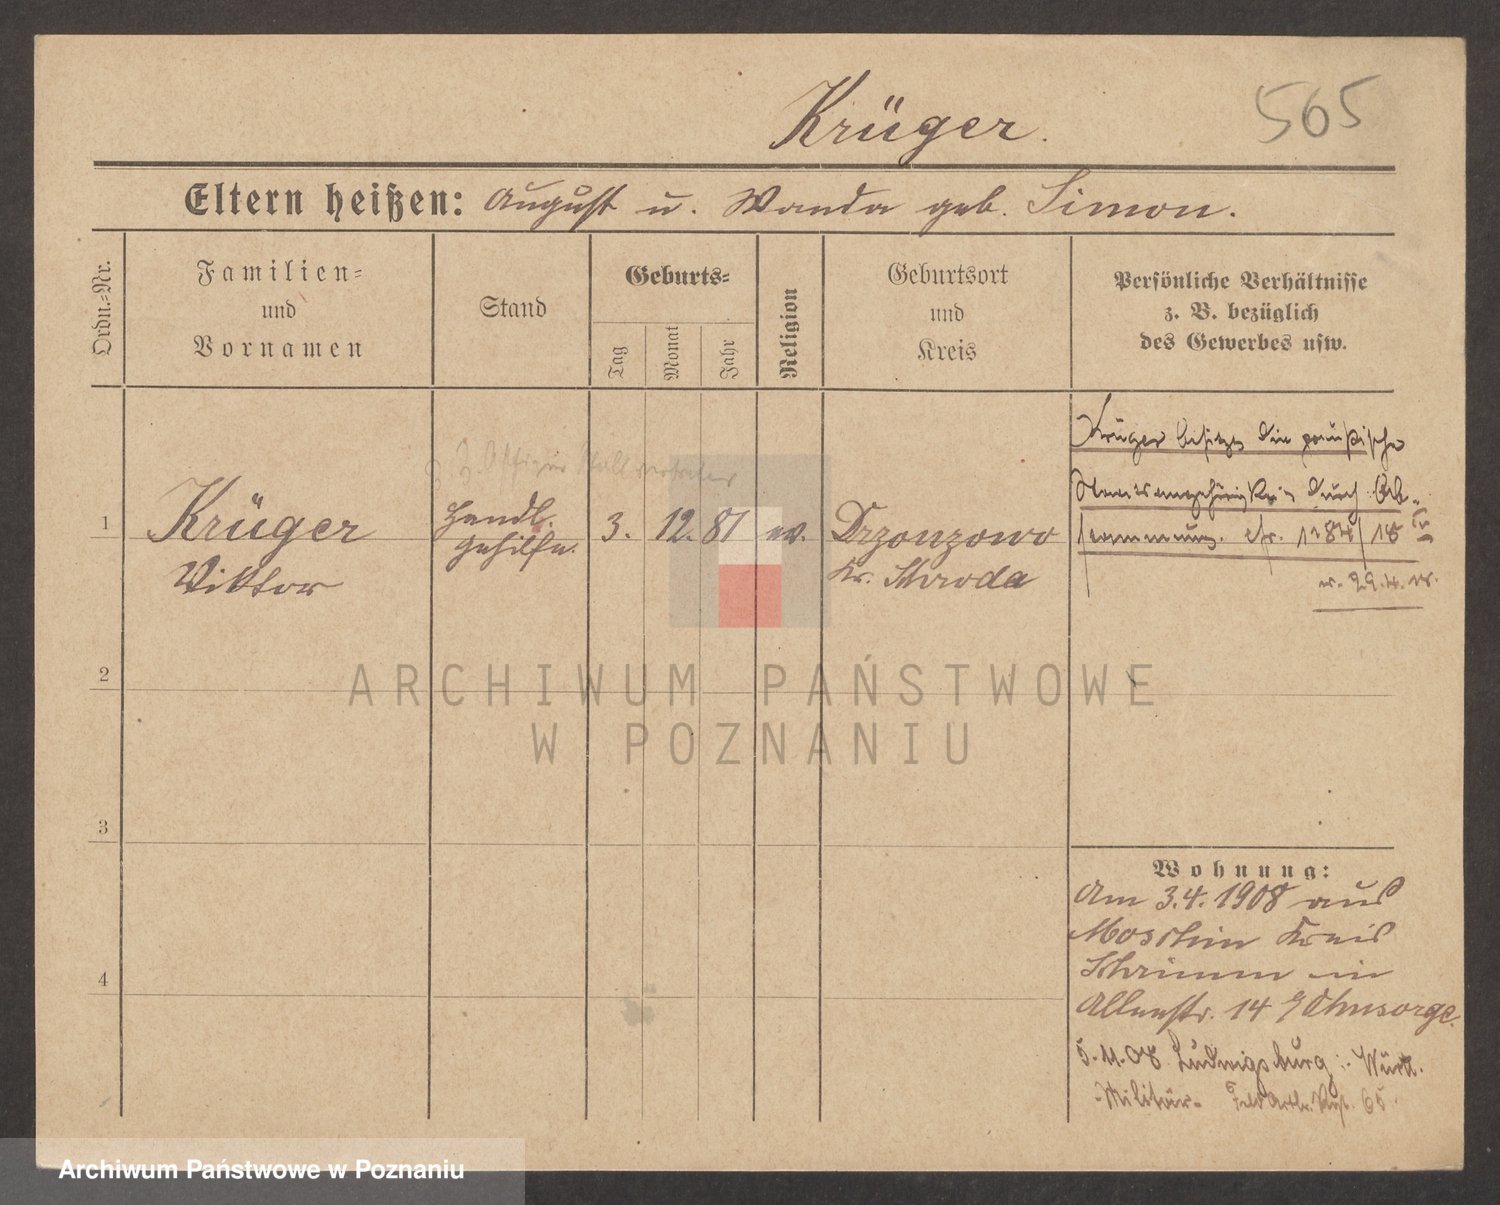 Krüger.
565
Eltern heißen: August u. Wanda geb. Simon.
Ordn.-Nr.
Familien-
und
Vornamen
Stand
Geburts-
Tag
Monat
Jahr
Religion
Geburtsort
und
Kreis
Persönliche Verhältnisse
z. B. bezüglich
des Gewerbes usw.
Krüger besitzt die preußische
Staatsangehörigkeit durch Ab-
stammung.
1
Krüger
Viktor
Handl.
gehilfe.
3. 12. 81 ev.
Drzonzowo
Kr. Schroda
2
3
4
Wohnung:
Am 3.4.1908 aus
Moschin Kreis
Schrimm in
14 Ohnsorge.
5.11.08 Ludwigsburg Württ.
-Militär- Feld Artl. Regt. 65.
ARCHIWUM PAŃSTWOWE
W POZNANIU
Archiwum Państwowe w Poznaniu